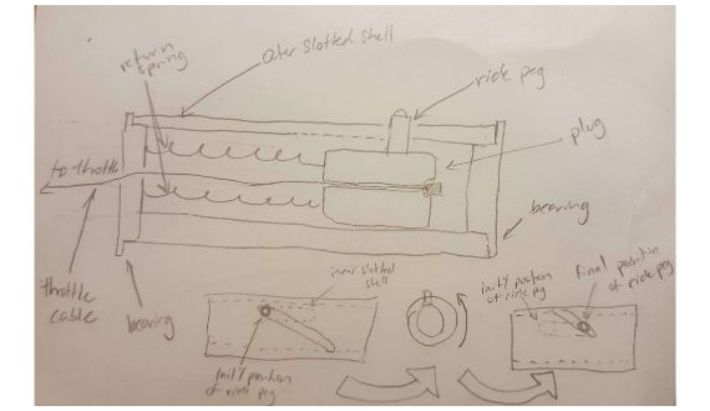 return
spring
outer slotted shell
ride peg
plug
to throttle
bearing
throttle
cable
bearing
inner slotted
shell
init'l position
of ride peg
init'l position
of ride peg
final position
of ride peg